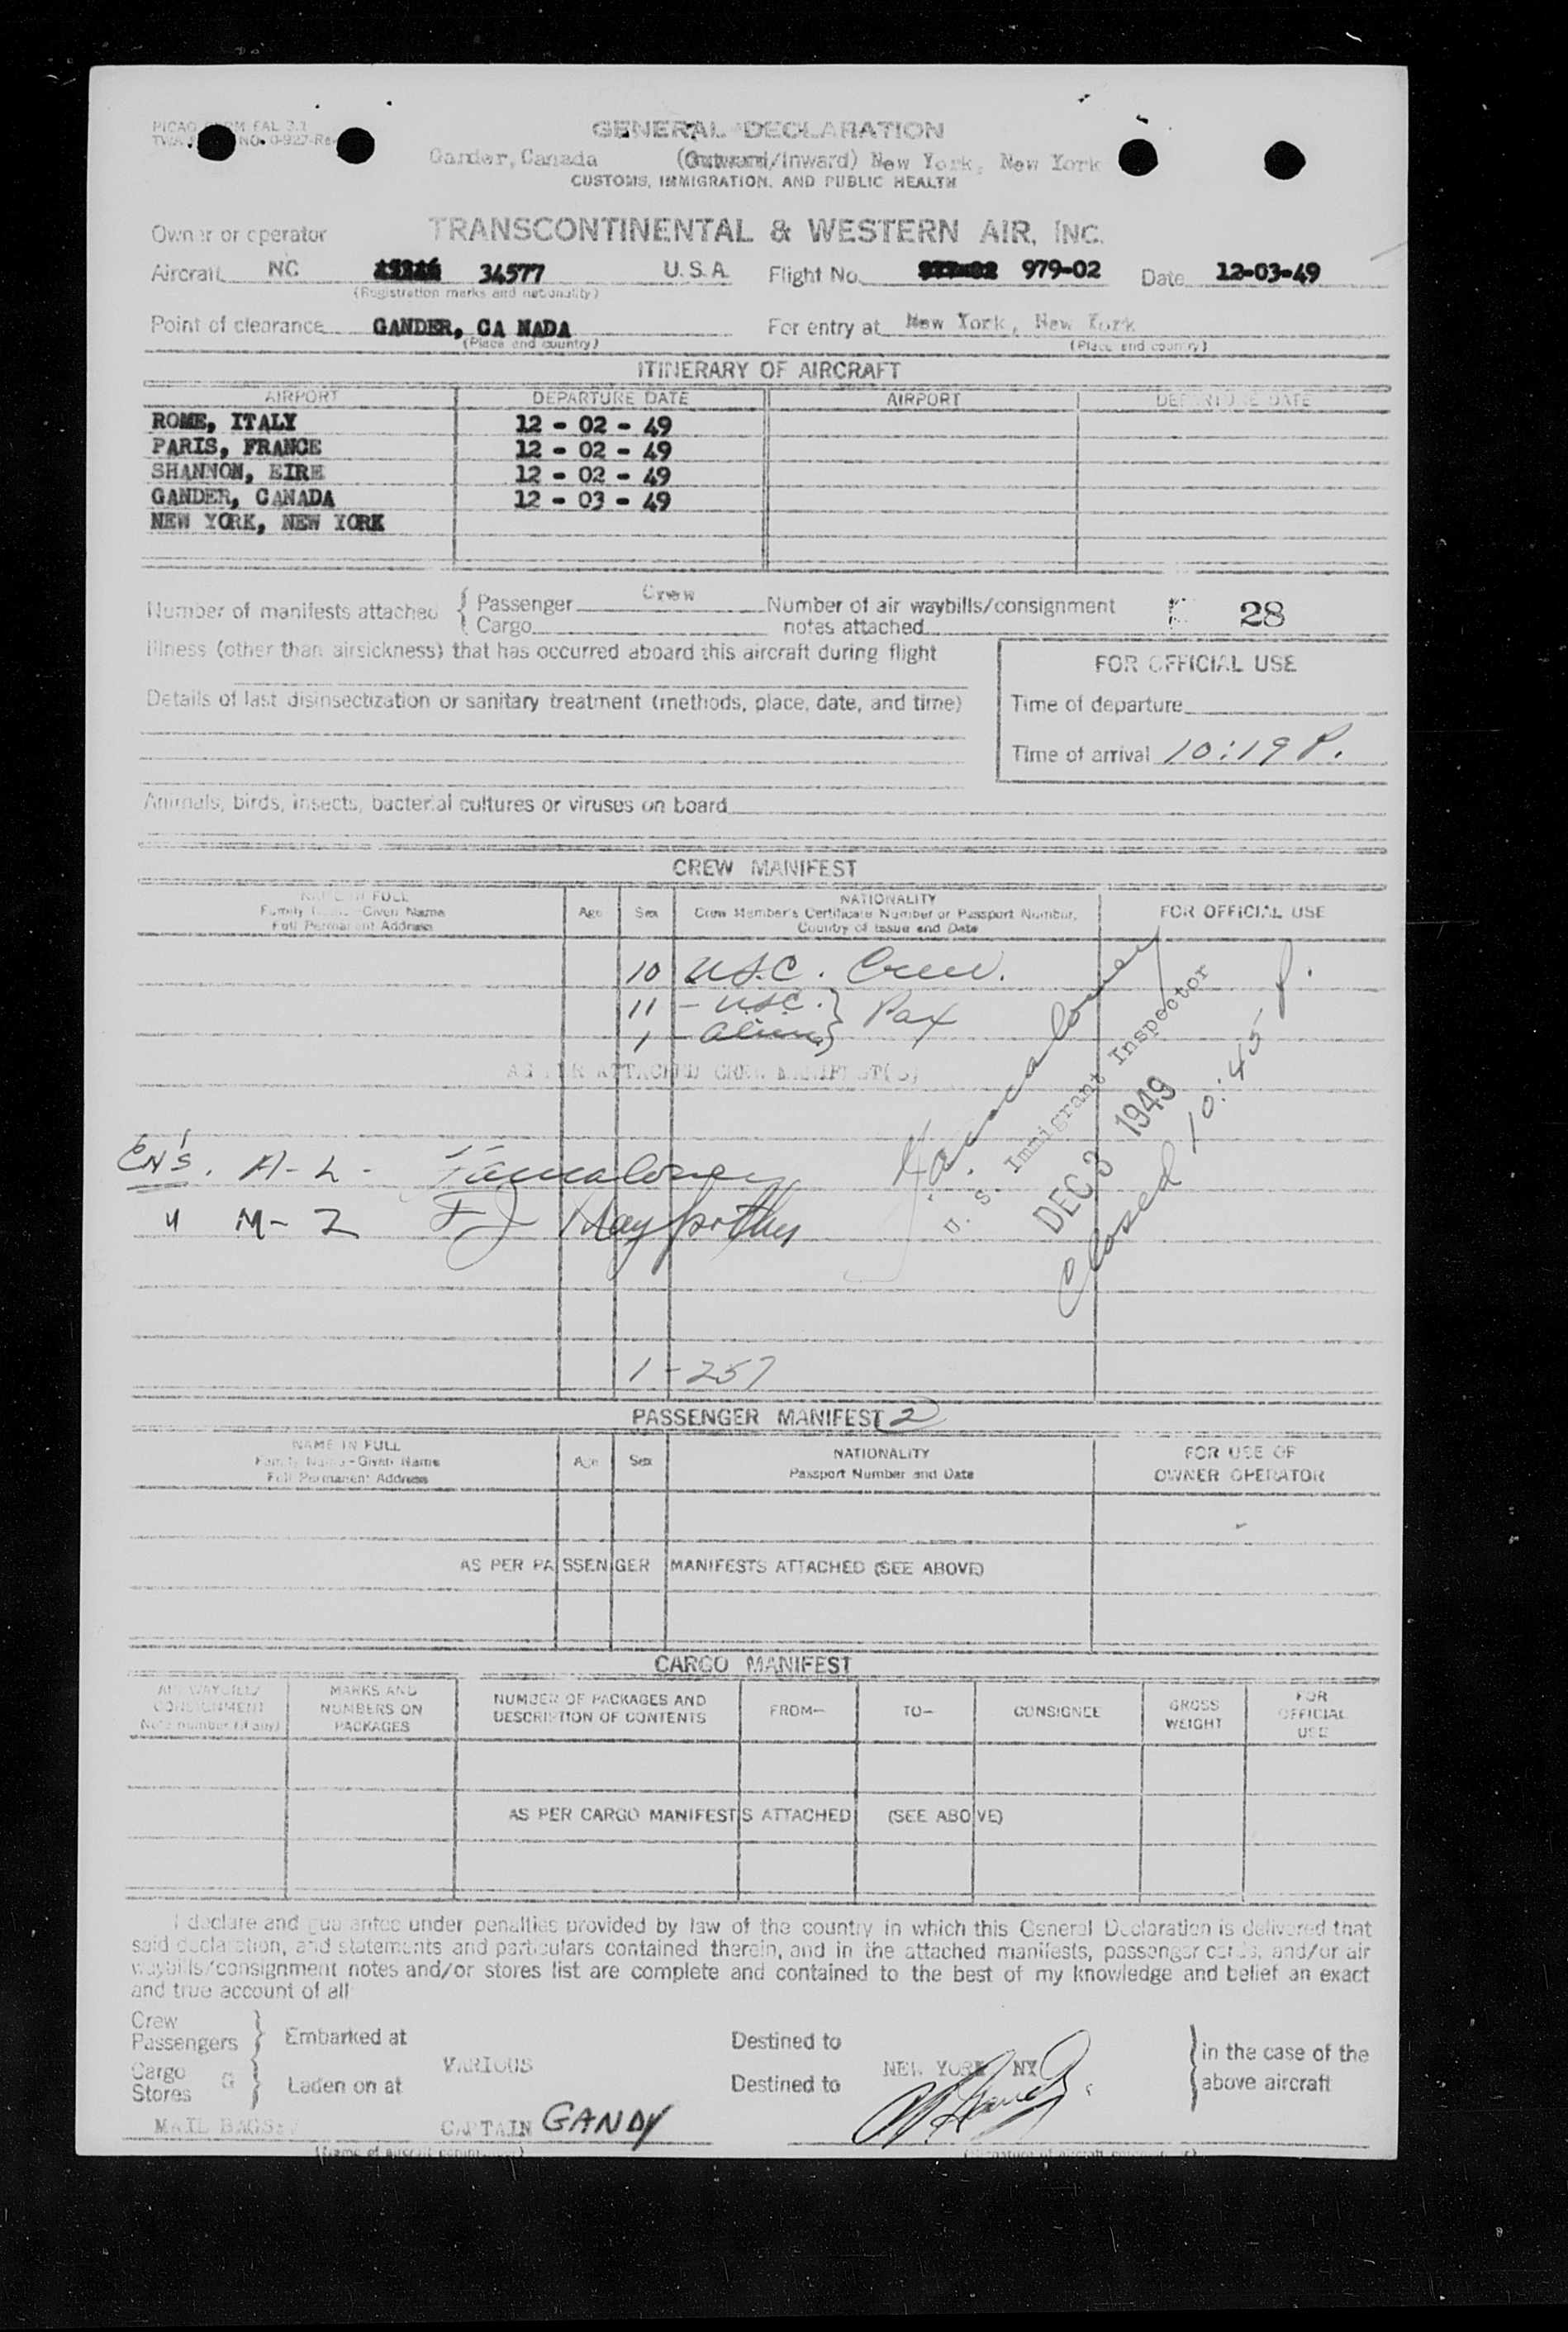 GENERAL DECLARATION
Gander, Canada (Outward/Inward) New York, New York
CUSTOMS, IMMIGRATION, AND PUBLIC HEALTH
Owner or operator TRANSCONTINENTAL & WESTERN AIR, INC.
Aircraft NC 34577 U.S.A. Flight No. 979-02 Date 12-03-49
(Registration marks and nationality)
Point of clearance GANDER, CA NADA For entry at New York, New York
(Place and country) (Place and country)
ITINERARY OF AIRCRAFT
AIRPORT DEPARTURE DATE AIRPORT DEPARTURE DATE
ROME, ITALY 12 - 02 - 49
PARIS, FRANCE 12 - 02 - 49
SHANNON, EIRE 12 - 02 - 49
GANDER, CANADA 12 - 03 - 49
NEW YORK, NEW YORK
Number of manifests attached { Passenger Crew Number of air waybills/consignment 28
Cargo notes attached
Illness (other than airsickness) that has occurred aboard this aircraft during flight
FOR OFFICIAL USE
Details of last disinsectization or sanitary treatment (methods, place, date, and time)
Time of departure
Time of arrival 10:19 P.
Animals, birds, insects, bacterial cultures or viruses on board
CREW MANIFEST
NAME IN FULL
Family Name-Given Name
Full Permanent Address
Age Sex
NATIONALITY
Crew Member's Certificate Number or Passport Number,
Country of Issue and Date
FOR OFFICIAL USE
10 U.S.C. Crew.
11 - U.S.C. } Pax
1 - Alien
AS PER ATTACHED CREW MANIFEST(S)
U. S. Immigrant Inspector
DEC 3 1949
Closed 10:45 P.
A-L-
" M-2 F J
1-257
PASSENGER MANIFEST 2
NAME IN FULL
Family Name-Given Name
Full Permanent Address
Age Sex
NATIONALITY
Passport Number and Date
FOR USE OF
OWNER OPERATOR
AS PER PASSENGER MANIFESTS ATTACHED (SEE ABOVE)
CARGO MANIFEST
AIR WAYBILL/
CONSIGNMENT
Note number (if any)
MARKS AND
NUMBERS ON
PACKAGES
NUMBER OF PACKAGES AND
DESCRIPTION OF CONTENTS
FROM—
TO—
CONSIGNEE
GROSS
WEIGHT
FOR
OFFICIAL
USE
AS PER CARGO MANIFESTS ATTACHED (SEE ABOVE)
I declare and guarantee under penalties provided by law of the country in which this General Declaration is delivered that
said declaration, and statements and particulars contained therein, and in the attached manifests, passenger cards, and/or air
waybills/consignment notes and/or stores list are complete and contained to the best of my knowledge and belief an exact
and true account of all
Crew
Passengers } Embarked at Destined to
VARIOUS NEW YORK NY
Cargo
Stores } Laden on at Destined to
in the case of the
above aircraft
MAIL BAGS CAPTAIN GANDY